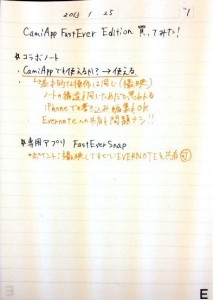 2013 1 25
CamiApp FastEver Edition 買ってみた!
*コラボノート
CamiAppでも使えるか?→使える
基本的な操作は同じ(撮影)
ノートの構造も同じためだと思われる
iPhoneでの書き込み編集もOK
Evernoteへの共有も問題ナシ!!
*専用アプリ FastEverSnap
ポイント:撮影してすぐにEVERNOTEに共有
E